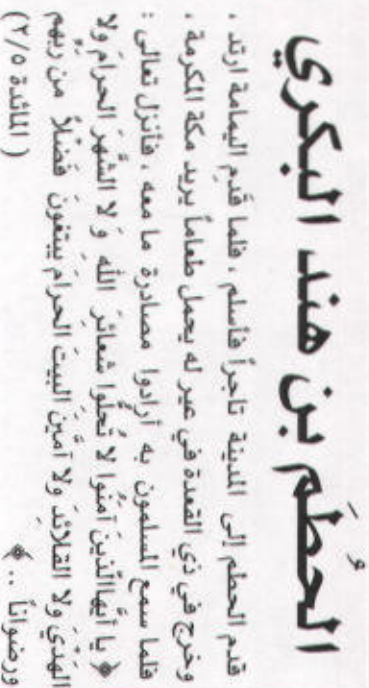 الحُطَم بن هند البكري
قدم الحطم إلى المدينة تاجراً فأسلم ، فلما قَدِم اليمامة ارتد ،
وخرج في ذي القعدة في عير له يحمل طعاماً يريد مكة المكرمة ،
فلما سمع المسلمون به أرادوا مصادرة ما معه ، فأنزل تعالى :
﴿ يا أيها الذينَ آمنُوا لا تُحلُّوا شعائرَ اللَّه وَ لا الشَّهرَ الحرامَ ولا
الهَدْيَ ولا القلائدَ ولا آمِّينَ البيتَ الحرامَ يبتغونَ فَضْلاً من ربهم
ورضواناً .. ﴾ ( المائدة ٢/٥)